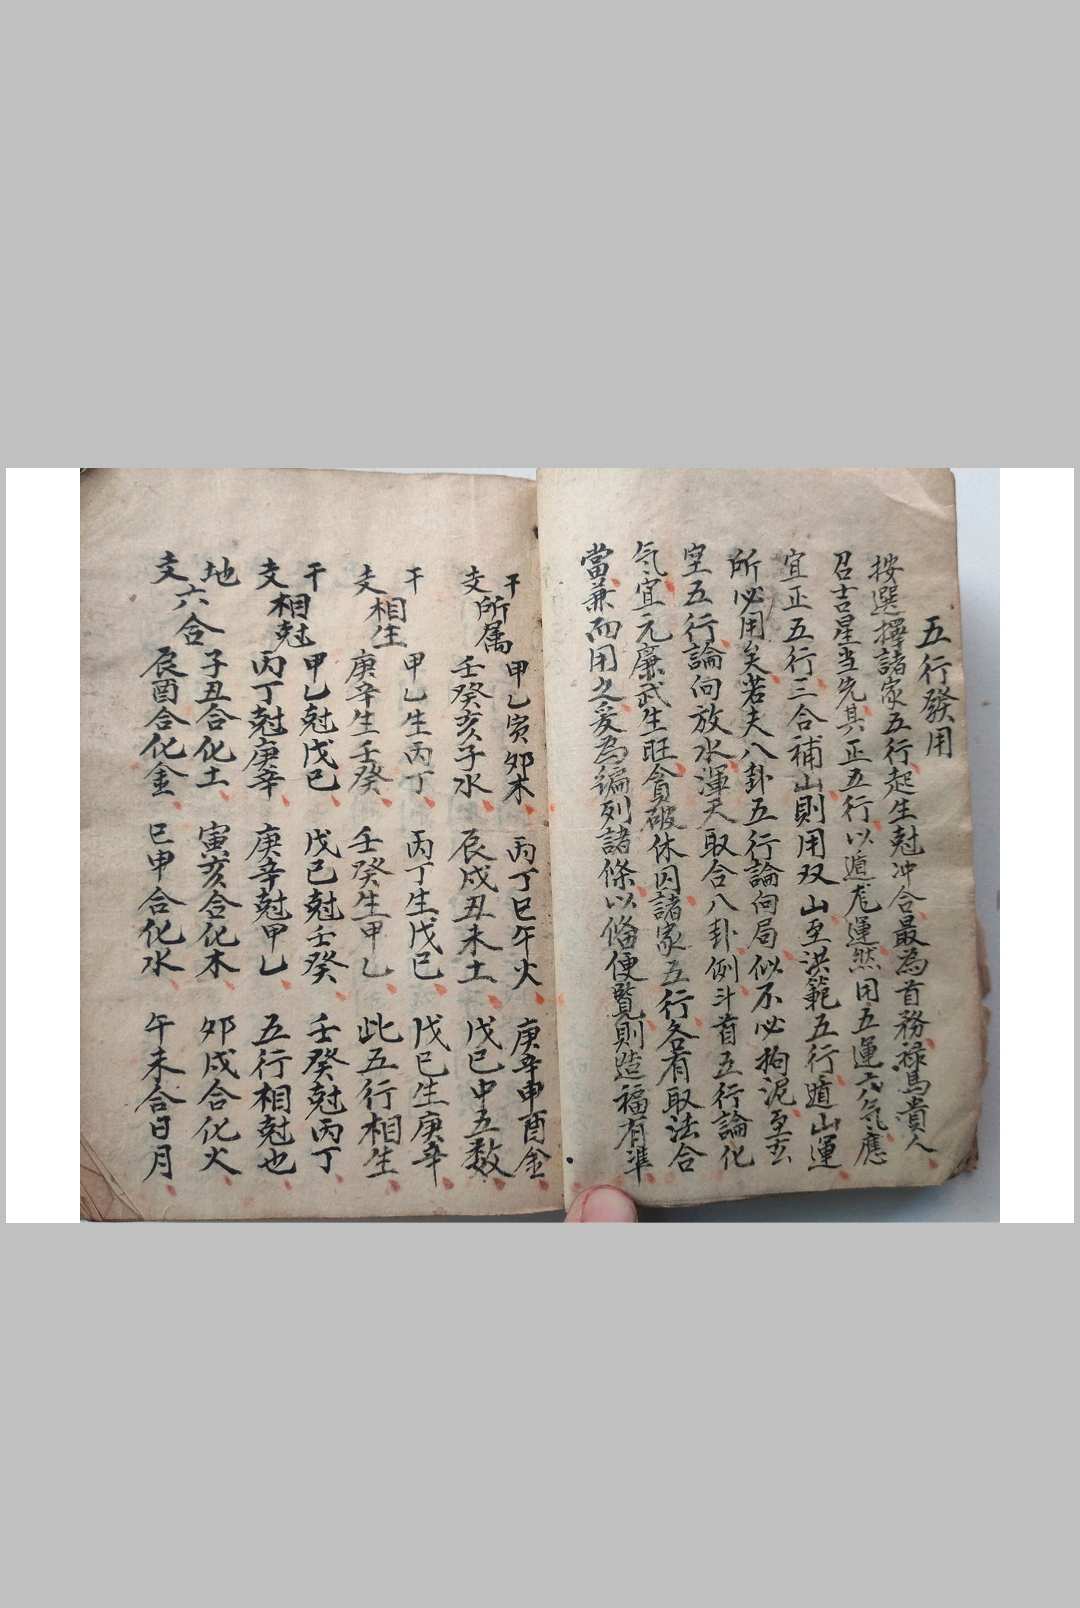 五行發用
按選擇諸家五行起生尅冲合最為首務祿馬貴人
召吉星当先其正五行以遁龙運然用五運六气應
宜正五行三合補山則用双山至洪範五行遁山運
所必用矣若夫八卦五行論向局似不必拘泥至玄
空五行論向放水渾天取合八卦例斗首五行論化
氣宜元廉武生旺貪破休囚諸家五行各有取法合
當兼而用之爰為編列諸條以俻便覽則造福有準
干支所属
甲乙寅卯木 丙丁巳午火 庚辛申酉金
壬癸亥子水 辰戌丑未土 戊己中五数
干支相生
甲乙生丙丁 丙丁生戊己 戊己生庚辛
庚辛生壬癸 壬癸生甲乙 此五行相生
干支相尅
甲乙尅戊己 戊己尅壬癸 壬癸尅丙丁
丙丁尅庚辛 庚辛尅甲乙 五行相尅也
地支六合
子丑合化土 寅亥合化木 卯戌合化火
辰酉合化金 巳申合化水 午未合日月